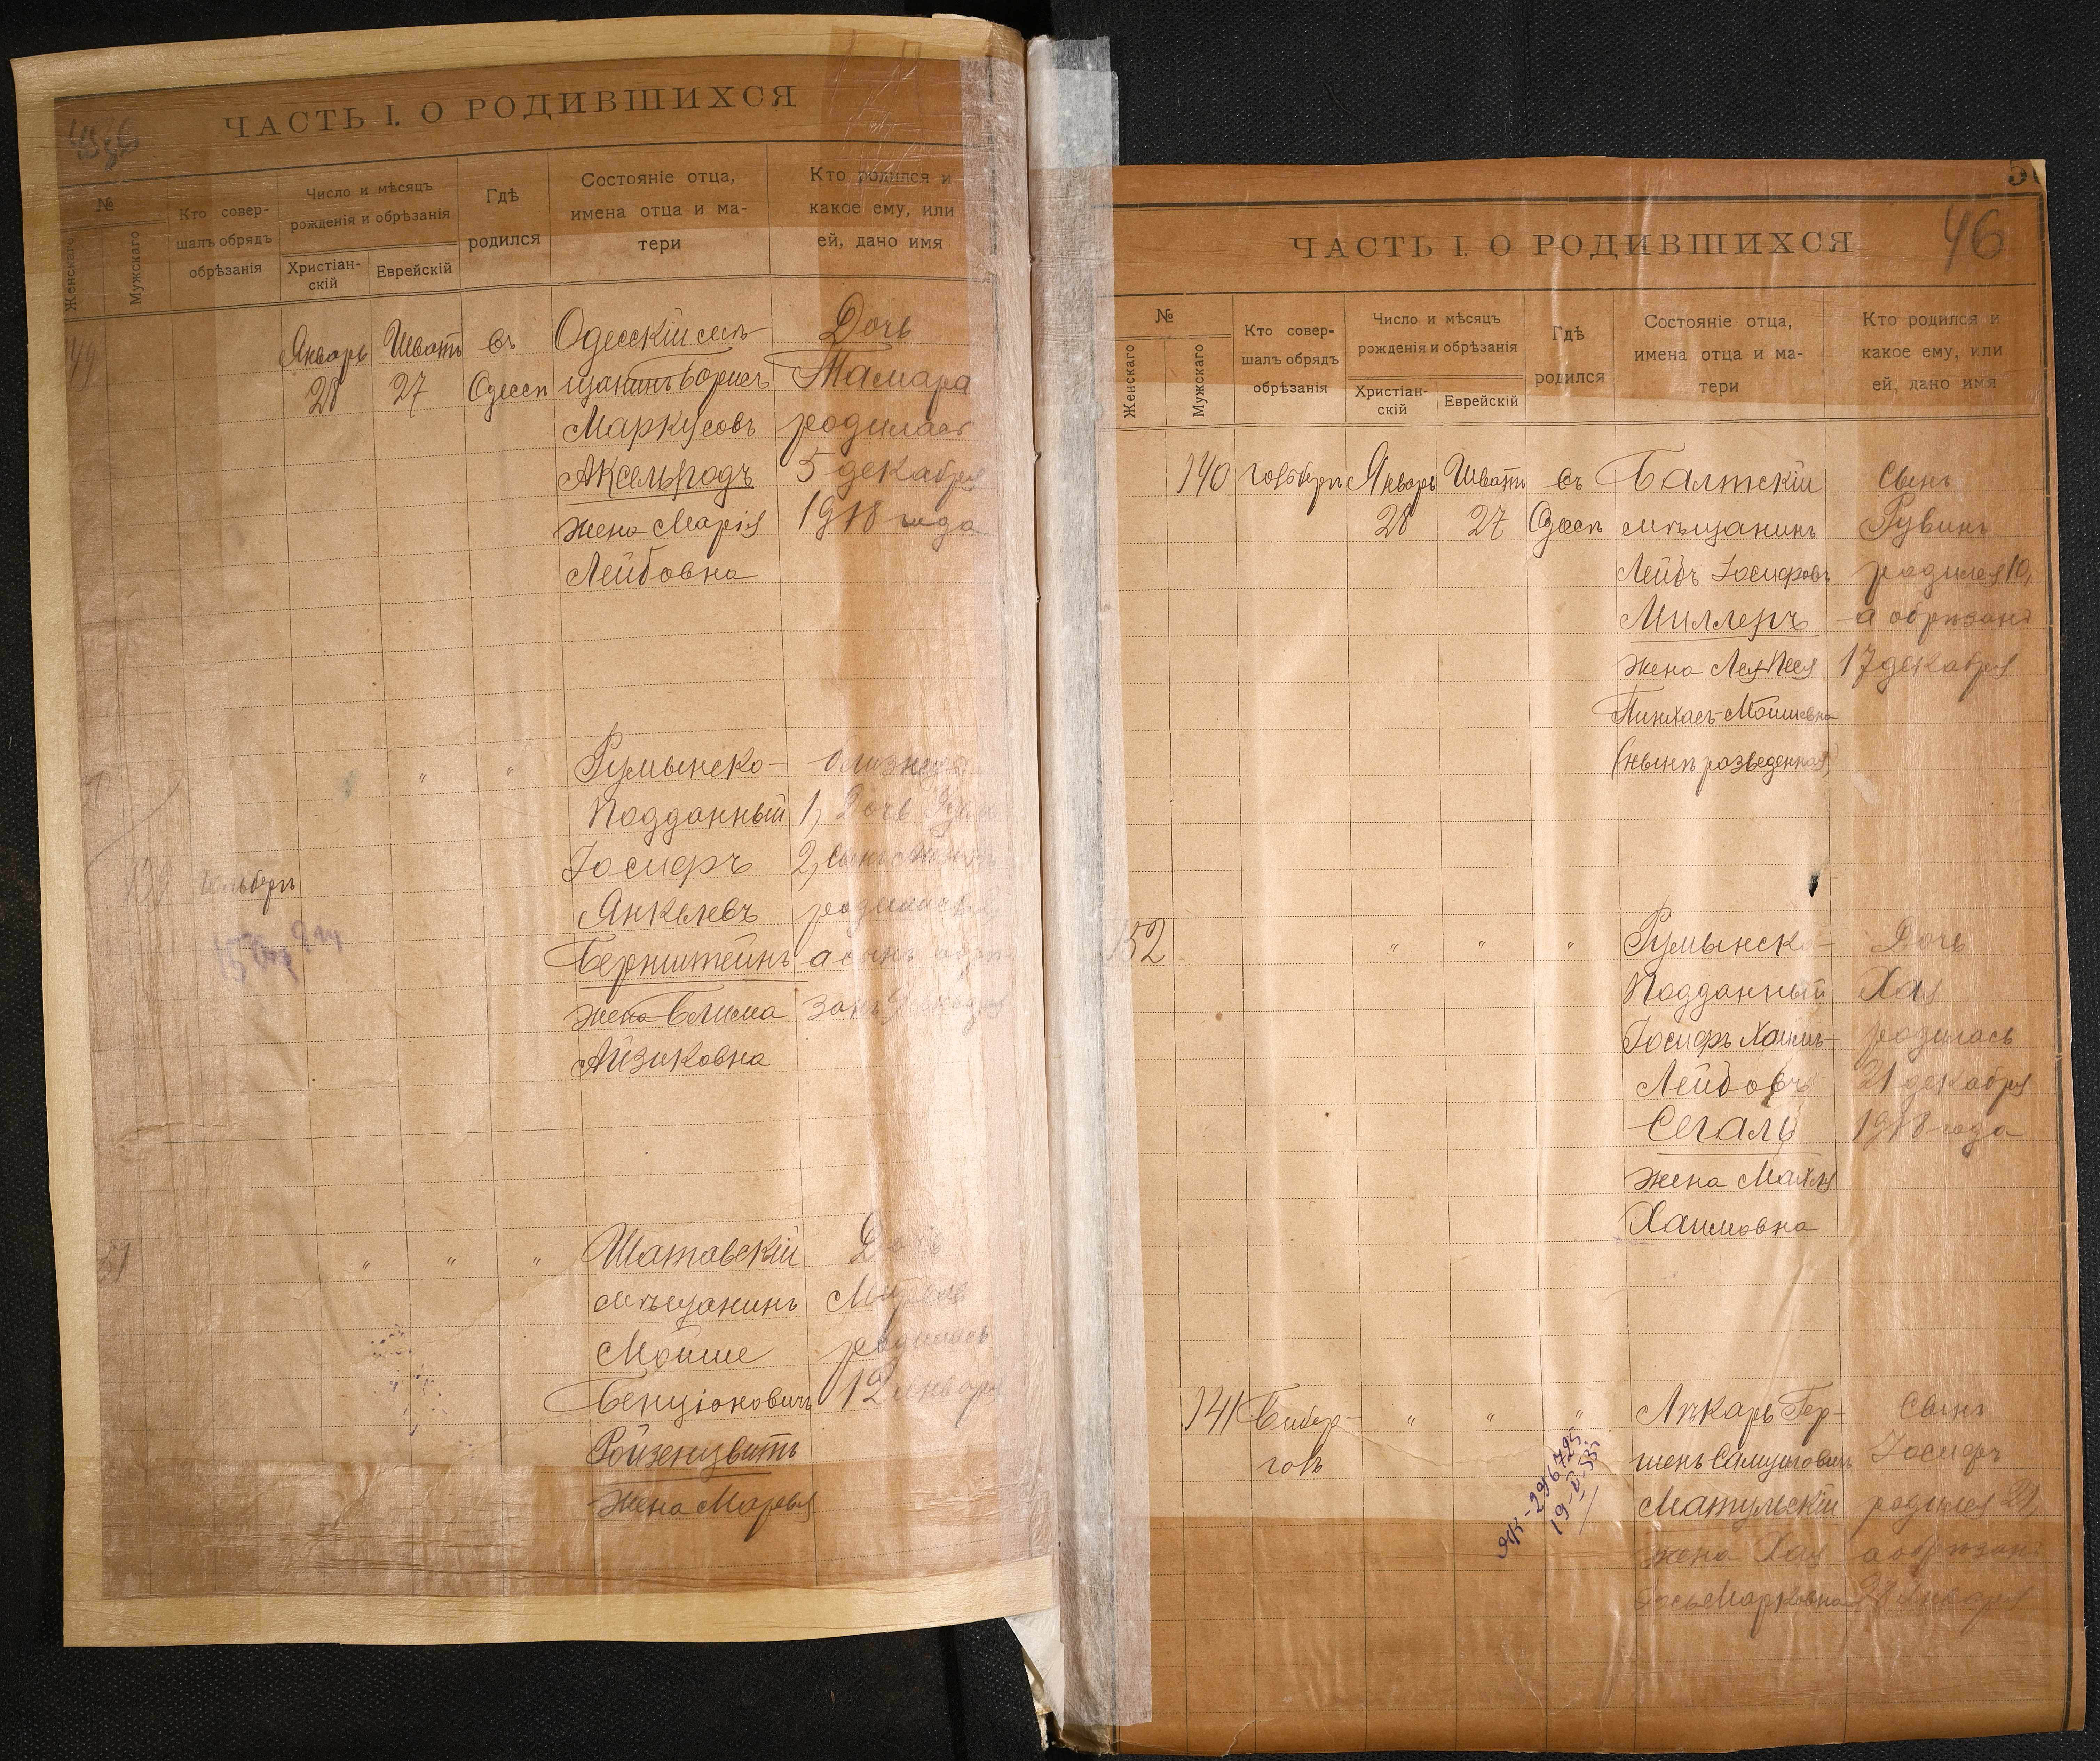 ЧАСТЬ I. О РОДИВШИХСЯ
№
Женскаго
Мужскаго
Кто совер-
шалъ обрядъ
обрѣзанія
Число и мѣсяцъ
рожденія и обрѣзанія
Христіан-
скій
Еврейскій
Гдѣ
родился
Состояніе отца,
имена отца и ма-
тери
Кто родился и
какое ему, или
ей, дано имя
Январь
28
Шватъ
27
въ
Одессѣ
Одесскій мѣ-
щанинъ Борисъ
Маркусовъ
Аксельродъ
жена Марія
Лейбовна
Дочь
Тамара
родилась
5 декабря
1918 года
139
"
"
Румынско-
подданный
Іосифъ
Янкелевъ
Бернштейнъ
жена Блима
Айзиковна
близнецы
1, Дочь
2, Сынъ
родились
а сынъ обрѣ-
занъ
"
"
"
Шатавскій
мѣщанинъ
Мойше
Бенціоновичъ
Ройзенцвитъ
жена Марья
Дочь
родилась
12 января
ЧАСТЬ I. О РОДИВШИХСЯ
46
№
Женскаго
Мужскаго
Кто совер-
шалъ обрядъ
обрѣзанія
Число и мѣсяцъ
рожденія и обрѣзанія
Христіан-
скій
Еврейскій
Гдѣ
родился
Состояніе отца,
имена отца и ма-
тери
Кто родился и
какое ему, или
ей, дано имя
140
Январь
28
Шватъ
27
въ
Одессѣ
Балтскій
мѣщанинъ
Лейбъ Іосифовъ
Миллеръ
жена Лея-Песя
Пинхасъ-Мошковна
(нынѣ разведенная)
Сынъ
Рувинъ
родился 10,
а обрѣзанъ
17 декабря
152
"
"
"
Румынско-
подданный
Іосифъ Хаимъ-
Лейбовъ
Сегаль
жена Махля
Хаимовна
Дочь
Хая
родилась
21 декабря
1918 года
141
Бибер-
галъ
"
"
"
ЯК-296725
19-V-55
Лѣкарь Гер-
шенъ Самуиловичъ
Матульскій
жена Хая
Марковна
Сынъ
Іосифъ
родился 21,
а обрѣзанъ
28 января